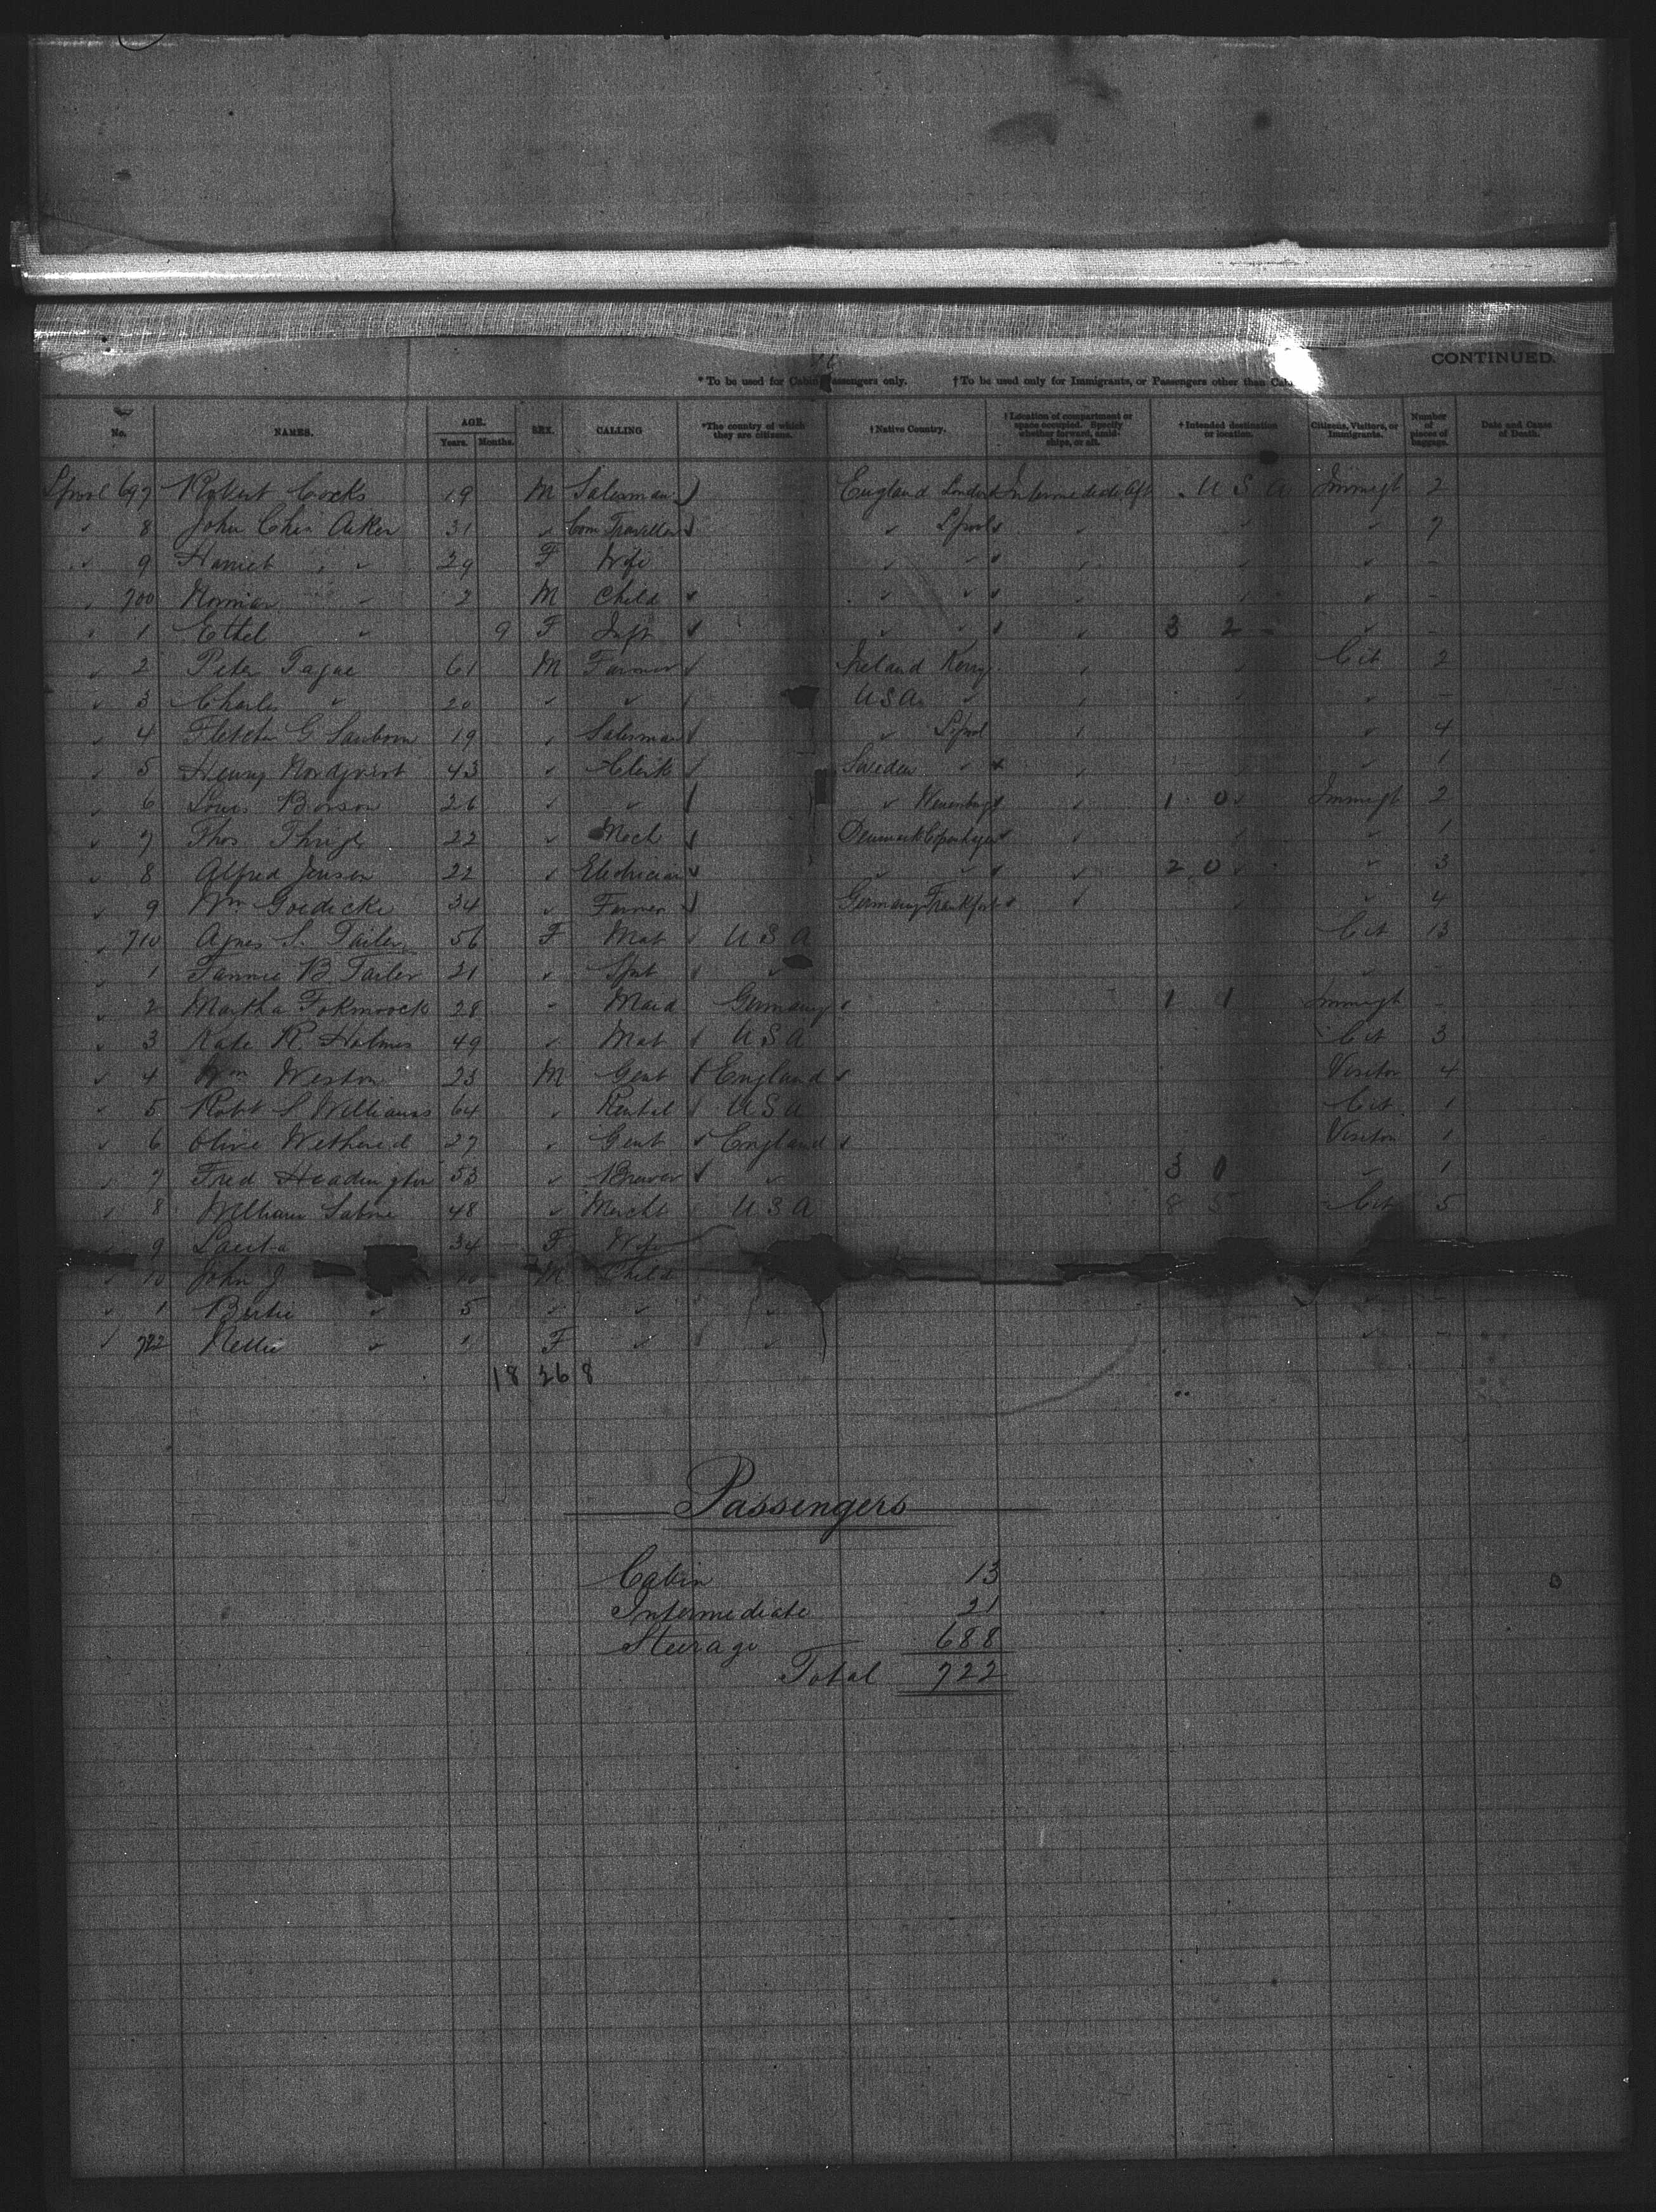 CONTINUED.
* To be used for Cabin Passengers only. † To be used only for Immigrants, or Passengers other than Cabin
No. NAMES. AGE. Years. Months. SEX. CALLING *The country of which they are citizens. † Native Country. † Location of compartment or space occupied. Specify whether forward, amidships, or aft. † Intended destination or location. Citizens, Visitors, or Immigrants. Number of pieces of baggage. Date and Cause of Death.
Lpool 697 Robert Cocks 19 M Salesman England London Intermediate Aft U S A Immigt 2
8 John Chas Aiken 31 Com Traveller Lpool 7
9 Harriet " 29 F Wife -
700 Norman " 2 M Child -
1 Ethel " 9 F Inft 3 2 -
2 Peter Tague 61 M Farmer Ireland Kerry Cit 2
3 Charles " 20 " U S A -
4 Fletcher G Sanborn 19 Salesman " Lpool 4
5 Henry Nordqvist 43 Clerk Sweden " 1
6 Louis Borson 26 " " 1 0 Immigt 2
7 Thos 22 Mech Denmark Copenhagen 1
8 Alfred Jensen 22 Electrician " " 2 0 3
9 Wm Goedicke 34 Farmer Germany Frankfort 4
710 Agnes S. Tailer 56 F Mat U S A Cit 13
1 Fannie B Tailer 21 " Spst " -
2 Martha 28 " Maid Germany 1 1 Immigt -
3 Kate R. Holmes 49 " Mat U S A Cit 3
4 Wm Weston 23 M Gent England Visitor 4
5 Robt S Williams 64 " U S A Cit 1
6 Olive Wethered 27 " Gent England Visitor 1
7 Fred Headington 53 " Brewer " 3 0 " 1
8 William Sabine 48 " Mercht U S A 8 5 Cit 5
9 34 F Wife
10 John J. 10 M Child
1 Bertie " 5 " " " " -
722 Nellie " 1 F " " " -
18 26 8
Passengers
Cabin 13
Intermediate 21
Steerage 688
Total 722